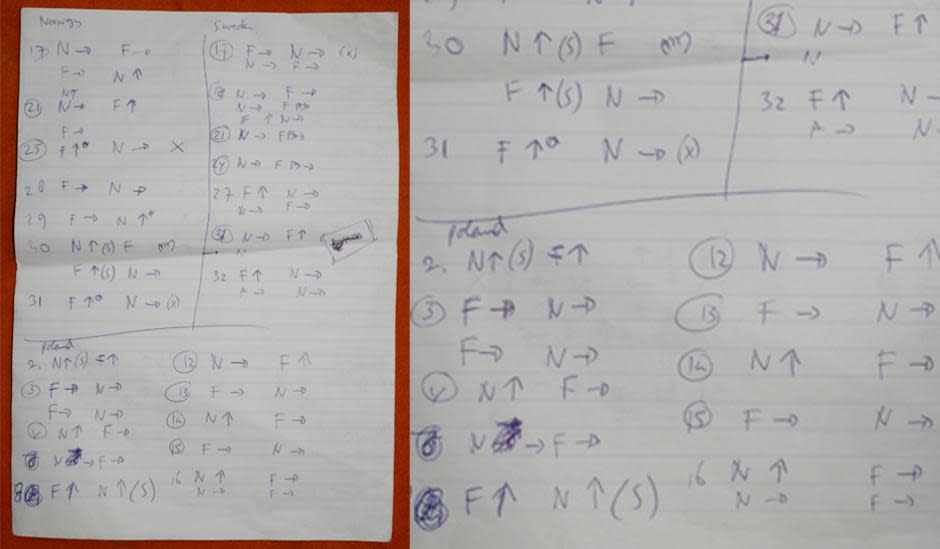 Norway
17 N → F →
F → N ↑
N↑
(21) N → F ↑
F →
(25) F ↑° N → X
28 F → N →
29 F → N ↑°
30 N ↑ (S) F (m)
F ↑ (S) N →
31 F ↑° N → (X)
Sweden
(17) F → N → (x)
N → F →
(18) N → F →
N → F
F ↑ N →
(21) N → F
(24) N → F
27 F ↑ N →
N → F →
(31) N → F ↑
"
32 F ↑ N →
N →
poland
2. N ↑ (S) F ↑
(3) F → N →
F → N →
(4) N ↑ F →
N → F →
8 F ↑ N ↑ (S)
(12) N → F ↑
(13) F → N →
(14) N ↑ F →
(15) F → N →
16 N ↑ F →
N → F →
30 N ↑ (S) F (m)
F ↑ (S) N →
31 F ↑° N → (X)
(31) N → F ↑
32 F ↑ N →
poland
2. N ↑ (S) F ↑
(3) F → N →
F → N →
(4) N ↑ F →
N → F →
F ↑ N ↑ (S)
(12) N → F ↑
(13) F → N →
(14) N ↑ F →
(15) F → N →
16 N ↑ F →
N → F →